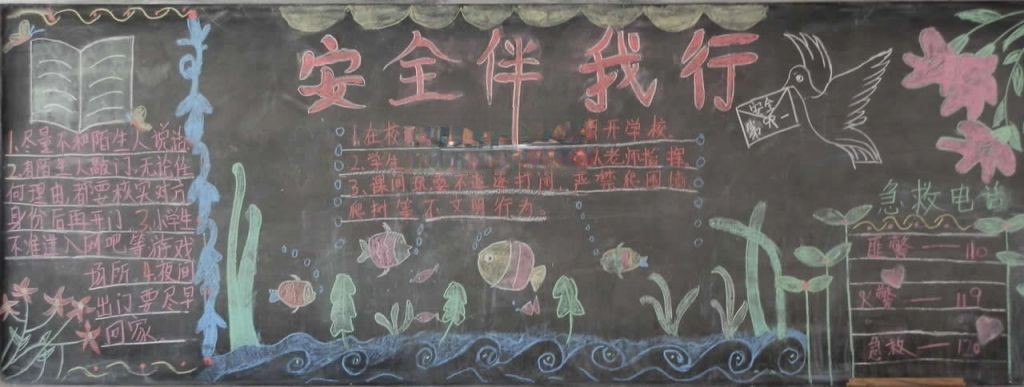 安全伴我行
安全
第一
1.尽量不和陌生人说话
2.有陌生人敲门,无论任
何理由,都要核实对方
身份后再开门 3.小学生
不准进入网吧等游戏
场所 4.夜间
出门要尽早
回家
1.在校 开学校.
2.学生 从老师指挥
3.课间 不追逐打闹,严禁爬围墙
爬树等不文明行为.
急救电话
匪警——110
火警——119
急救——120